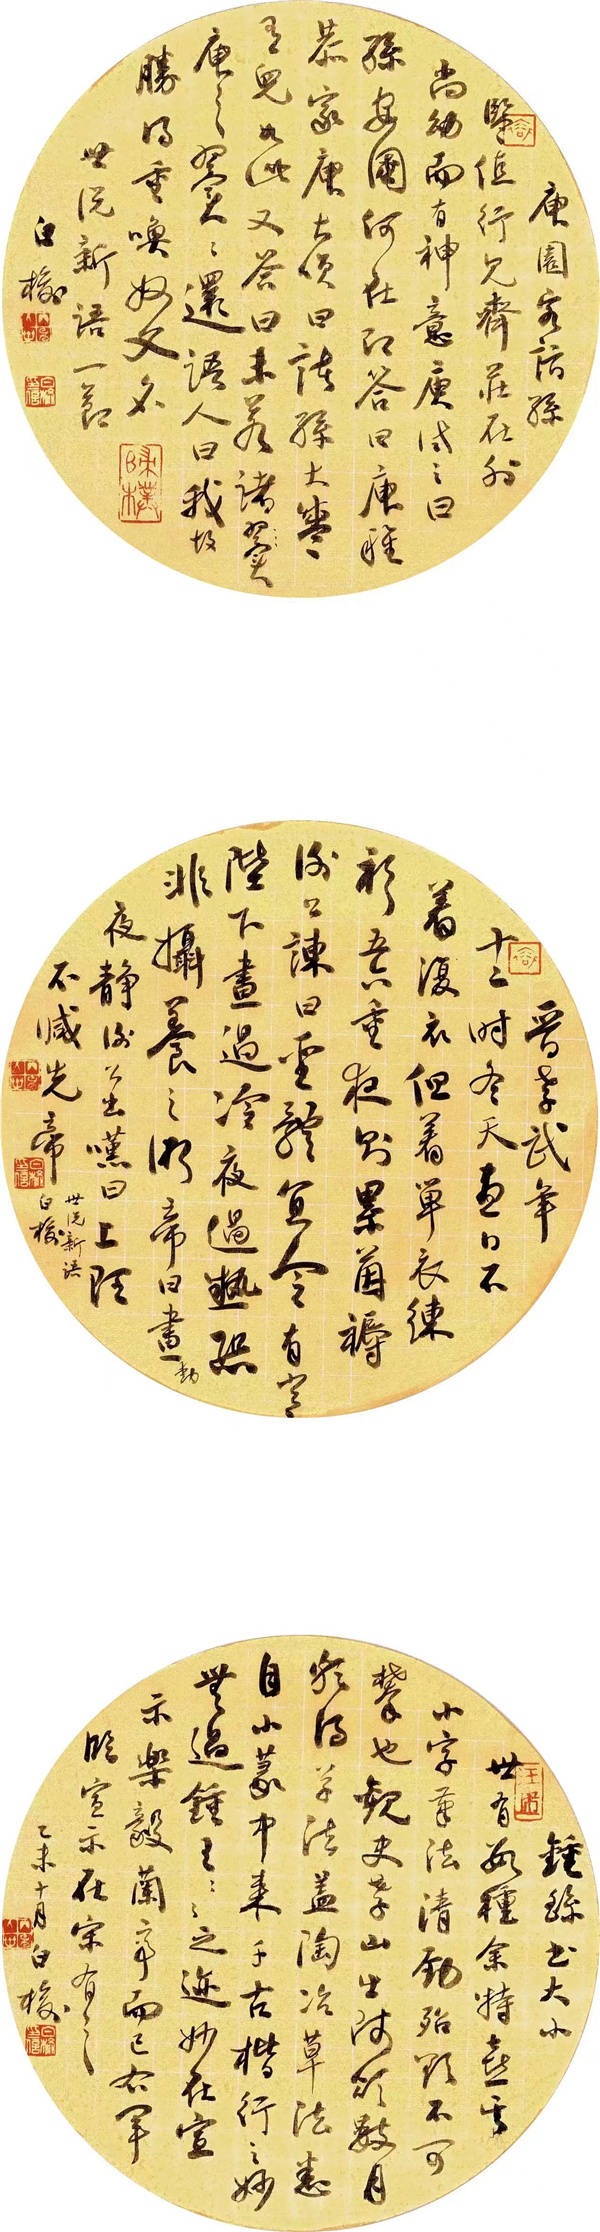 庾園客詣孫
監值行見齊莊在外
尚幼而有神意庾試之曰
孫安國何在即答曰庾稚
恭家庾大笑曰諸孫大盛
有兒如此又答曰未若諸翼
庾之翼翼還語人曰我故
勝得重喚奴父名
世說新語一節
白
晉孝武年
十二時冬天晝日不
着復衣但着單衣練
衫五重夜則累茵褥
謝公諫曰聖體宜令有常
陛下晝過冷夜過熱恐
非攝養之術帝曰晝動
夜靜謝公出嘆曰上理
不減先帝
世說新語
白
鍾繇書大小
世有數種余特喜其
小字筆法清勁殆欲不可
攀也觀史孝山出師頌數月
頗得草法蓋陶冶草法悉
自小篆中來千古楷行之妙
無過鍾王之迹妙在宣
示樂毅蘭亭而已右軍
臨宣示在宋有之
乙未十月白